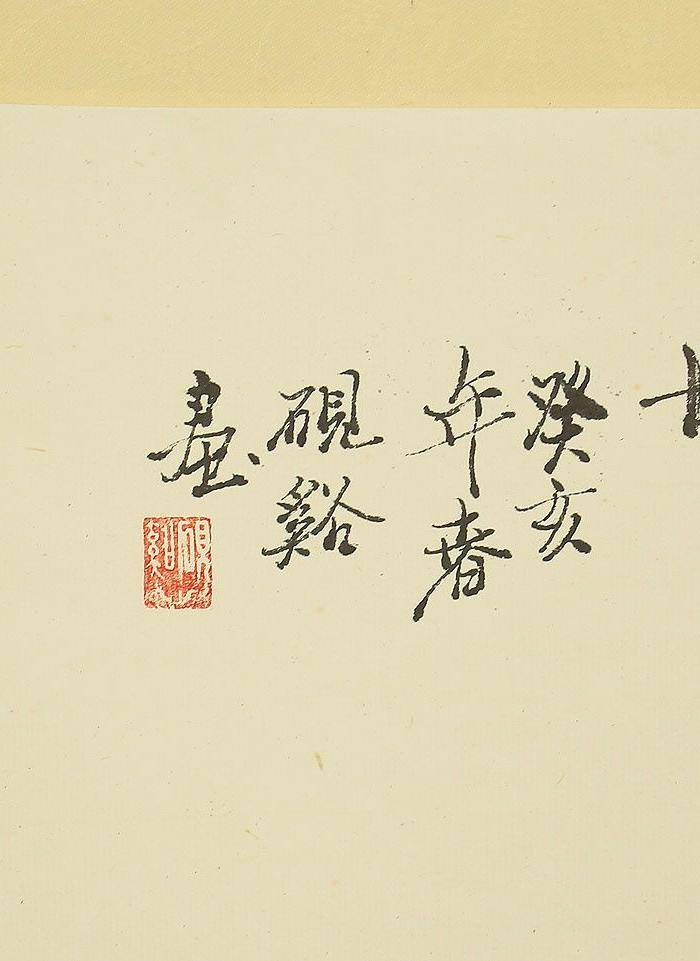 癸亥
年春
硯谿
畫